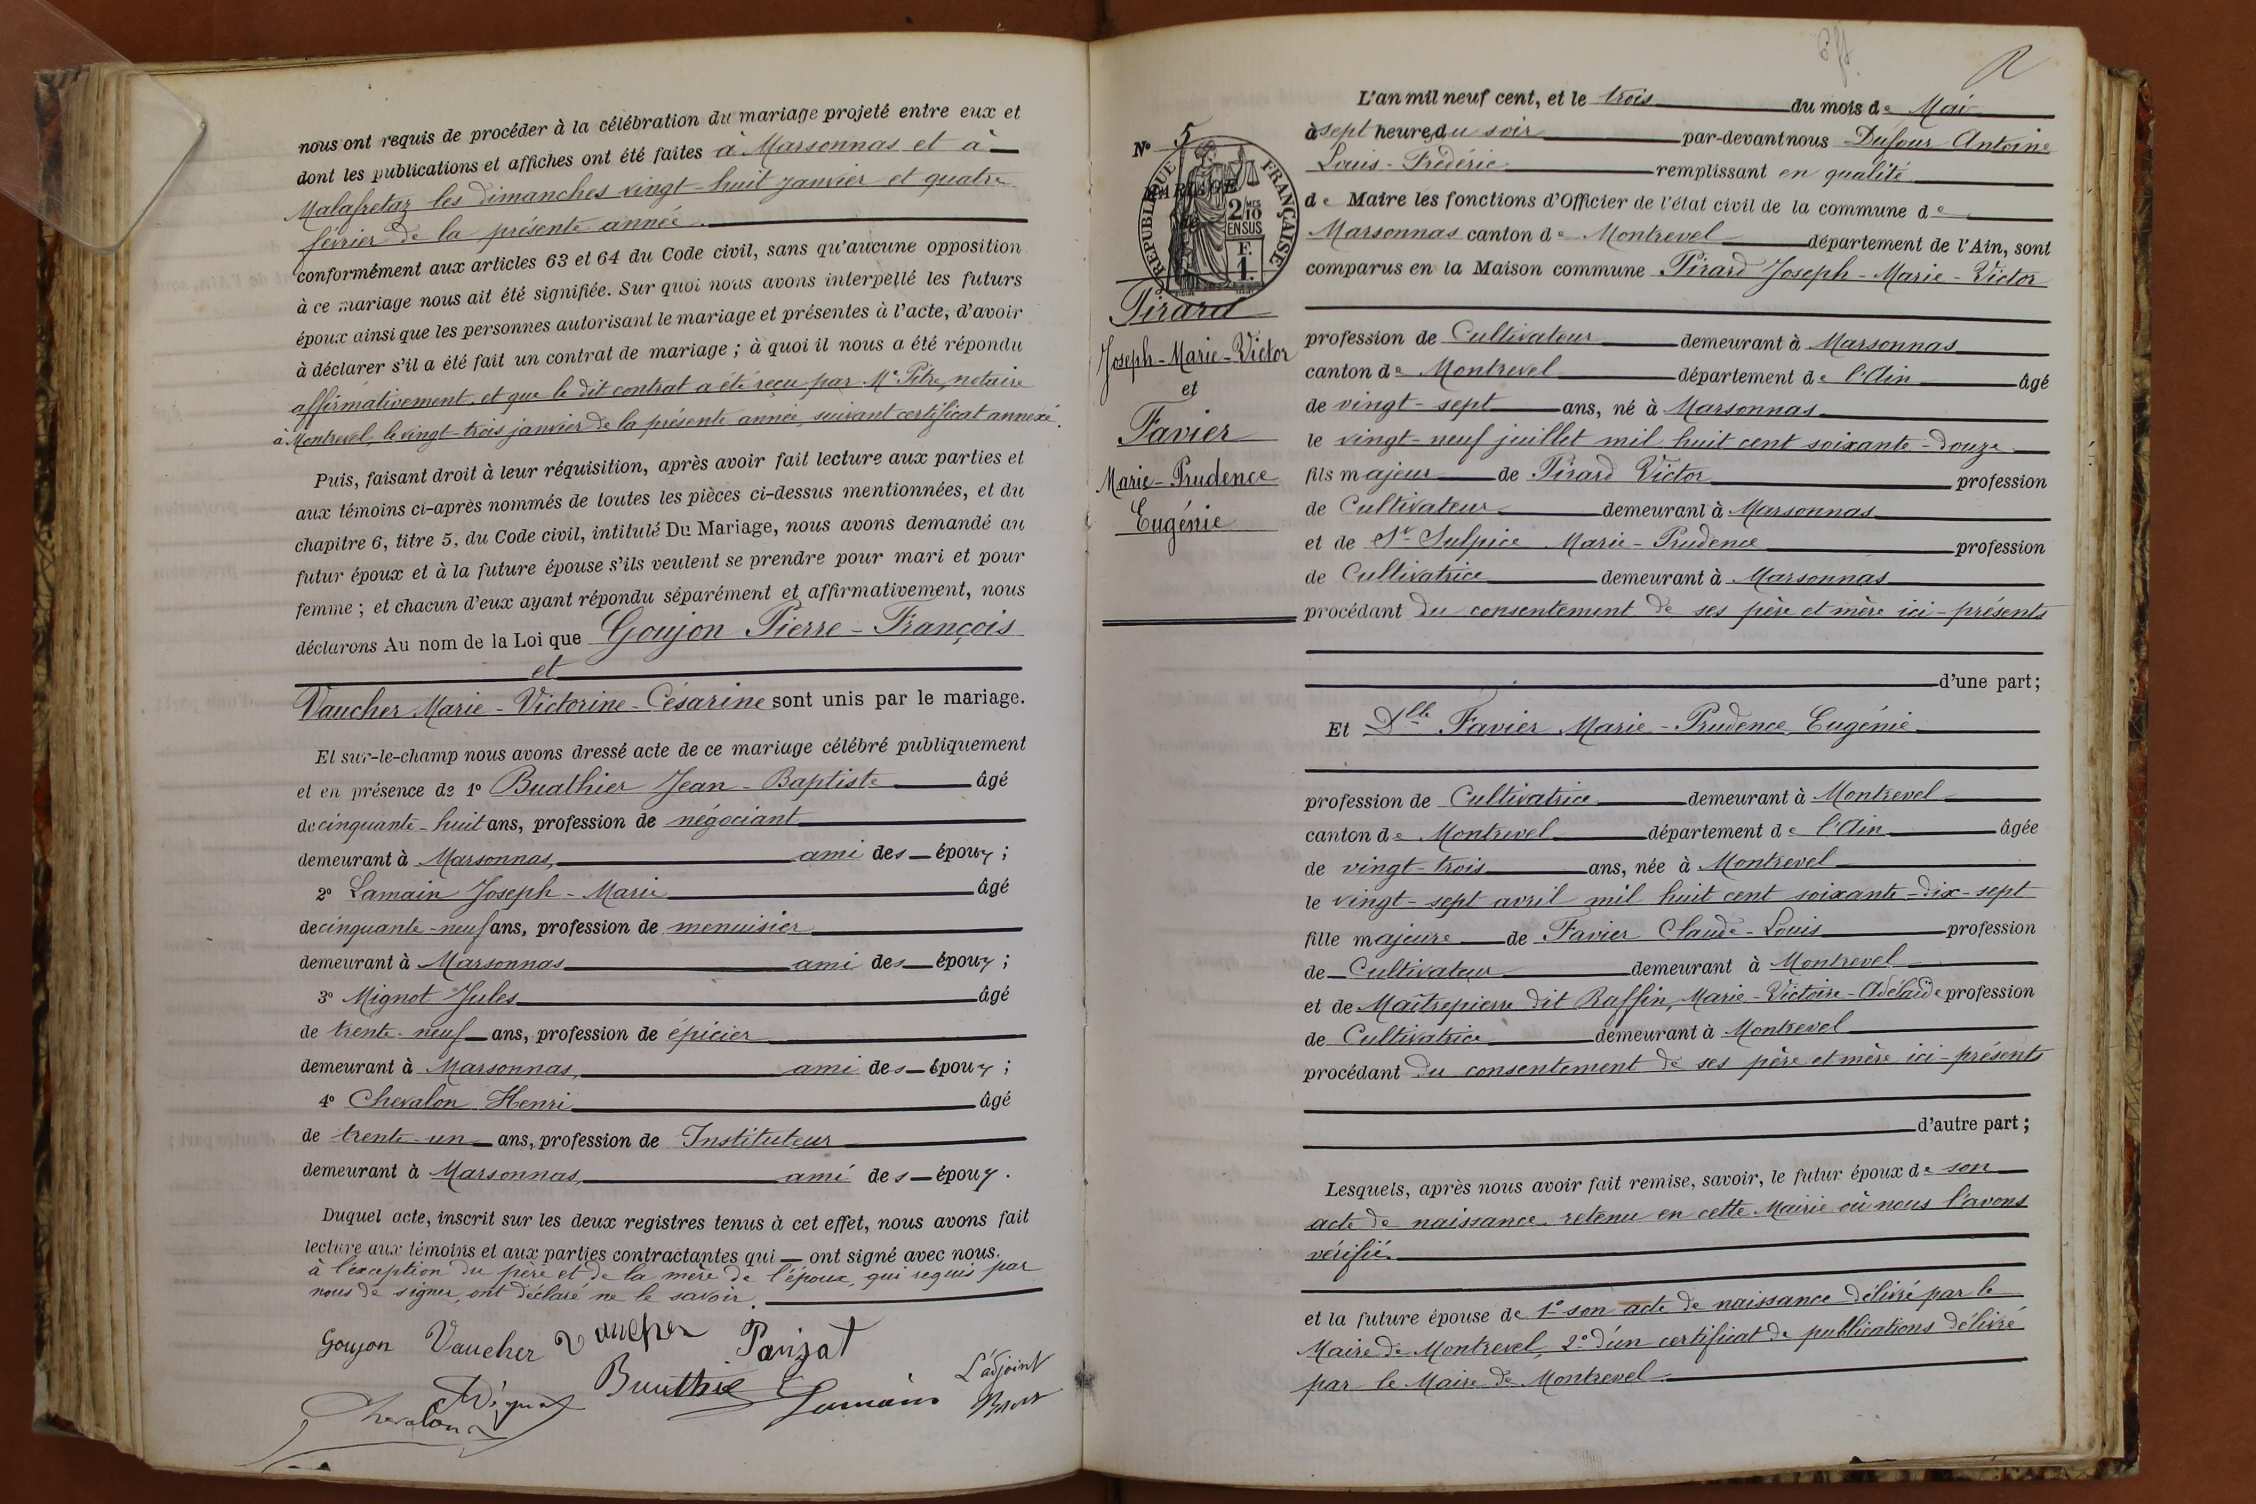 nous ont requis de procéder à la célébration du mariage projeté entre eux et
dont les publications et affiches ont été faites à Marsonnas et à
Malafretaz les dimanches vingt-huit janvier et quatre
février de la présente année.
conformément aux articles 63 et 64 du Code civil, sans qu'aucune opposition
à ce mariage nous ait été signifiée. Sur quoi nous avons interpellé les futurs
époux ainsi que les personnes autorisant le mariage et présentes à l'acte, d'avoir
à déclarer s'il a été fait un contrat de mariage ; à quoi il nous a été répondu
affirmativement, et que le dit contrat a été reçu par Me Pitre, notaire
à Montrevel, le vingt-trois janvier de la présente année, suivant certificat annexé.
Puis, faisant droit à leur réquisition, après avoir fait lecture aux parties et
aux témoins ci-après nommés de toutes les pièces ci-dessus mentionnées, et du
chapitre 6, titre 5, du Code civil, intitulé Du Mariage, nous avons demandé au
futur époux et à la future épouse s'ils veulent se prendre pour mari et pour
femme ; et chacun d'eux ayant répondu séparément et affirmativement, nous
déclarons Au nom de la Loi que Goujon Pierre-François
et
Vaucher Marie-Victorine-Césarine sont unis par le mariage.
Et sur-le-champ nous avons dressé acte de ce mariage célébré publiquement
et en présence de 1° Buathier Jean-Baptiste âgé
de cinquante-huit ans, profession de négociant
demeurant à Marsonnas, ami des époux ;
2° Lamain Joseph-Marie âgé
de cinquante-neuf ans, profession de menuisier
demeurant à Marsonnas ami des époux ;
3° Mignot Jules âgé
de trente-neuf ans, profession de épicier
demeurant à Marsonnas, ami des époux ;
4° Chevalon Henri âgé
de trente-un ans, profession de Instituteur
demeurant à Marsonnas, ami des époux.
Duquel acte, inscrit sur les deux registres tenus à cet effet, nous avons fait
lecture aux témoins et aux parties contractantes qui ont signé avec nous.
à l'exception du père et de la mère de l'époux, qui requis par
nous de signer, ont déclaré ne le savoir.
Goujon Vaucher Vaucher Panisat
Buathié
L'adjoint
Chevalon Mignot Lamain
N° 5
RÉPUBLIQUE FRANÇAISE
2 MES 10 EN SUS
F. 1.
MARIAGE
de
Pirard
Joseph-Marie-Victor
et
Favier
Marie-Prudence
Eugénie
L'an mil neuf cent, et le trois du mois de Mai
à sept heures du soir par-devant nous Dufour Antoine
Louis-Frédéric remplissant en qualité
de Maire les fonctions d'Officier de l'état civil de la commune de
Marsonnas canton de Montrevel département de l'Ain, sont
comparus en la Maison commune Pirard Joseph-Marie-Victor
profession de Cultivateur demeurant à Marsonnas
canton de Montrevel département de l'Ain âgé
de vingt-sept ans, né à Marsonnas
le vingt-neuf juillet mil huit cent soixante-douze
fils majeur de Pirard Victor profession
de Cultivateur demeurant à Marsonnas
et de St Sulpice Marie-Prudence profession
de Cultivatrice demeurant à Marsonnas
procédant du consentement de ses père et mère ici-présents
d'une part;
Et Dlle Favier Marie-Prudence Eugénie
profession de Cultivatrice demeurant à Montrevel
canton de Montrevel département de l'Ain âgée
de vingt-trois ans, née à Montrevel
le vingt-sept avril mil huit cent soixante-dix-sept
fille majeure de Favier Claude-Louis profession
de Cultivateur demeurant à Montrevel
et de Maîtrepierre dit Raffin, Marie-Victoire-Adélaïde profession
de Cultivatrice demeurant à Montrevel
procédant du consentement de ses père et mère ici-présents
d'autre part ;
Lesquels, après nous avoir fait remise, savoir, le futur époux de son
acte de naissance retenu en cette Mairie où nous l'avons
vérifié.
et la future épouse de 1° son acte de naissance délivré par le
Maire de Montrevel, 2° d'un certificat de publications délivré
par le Maire de Montrevel.